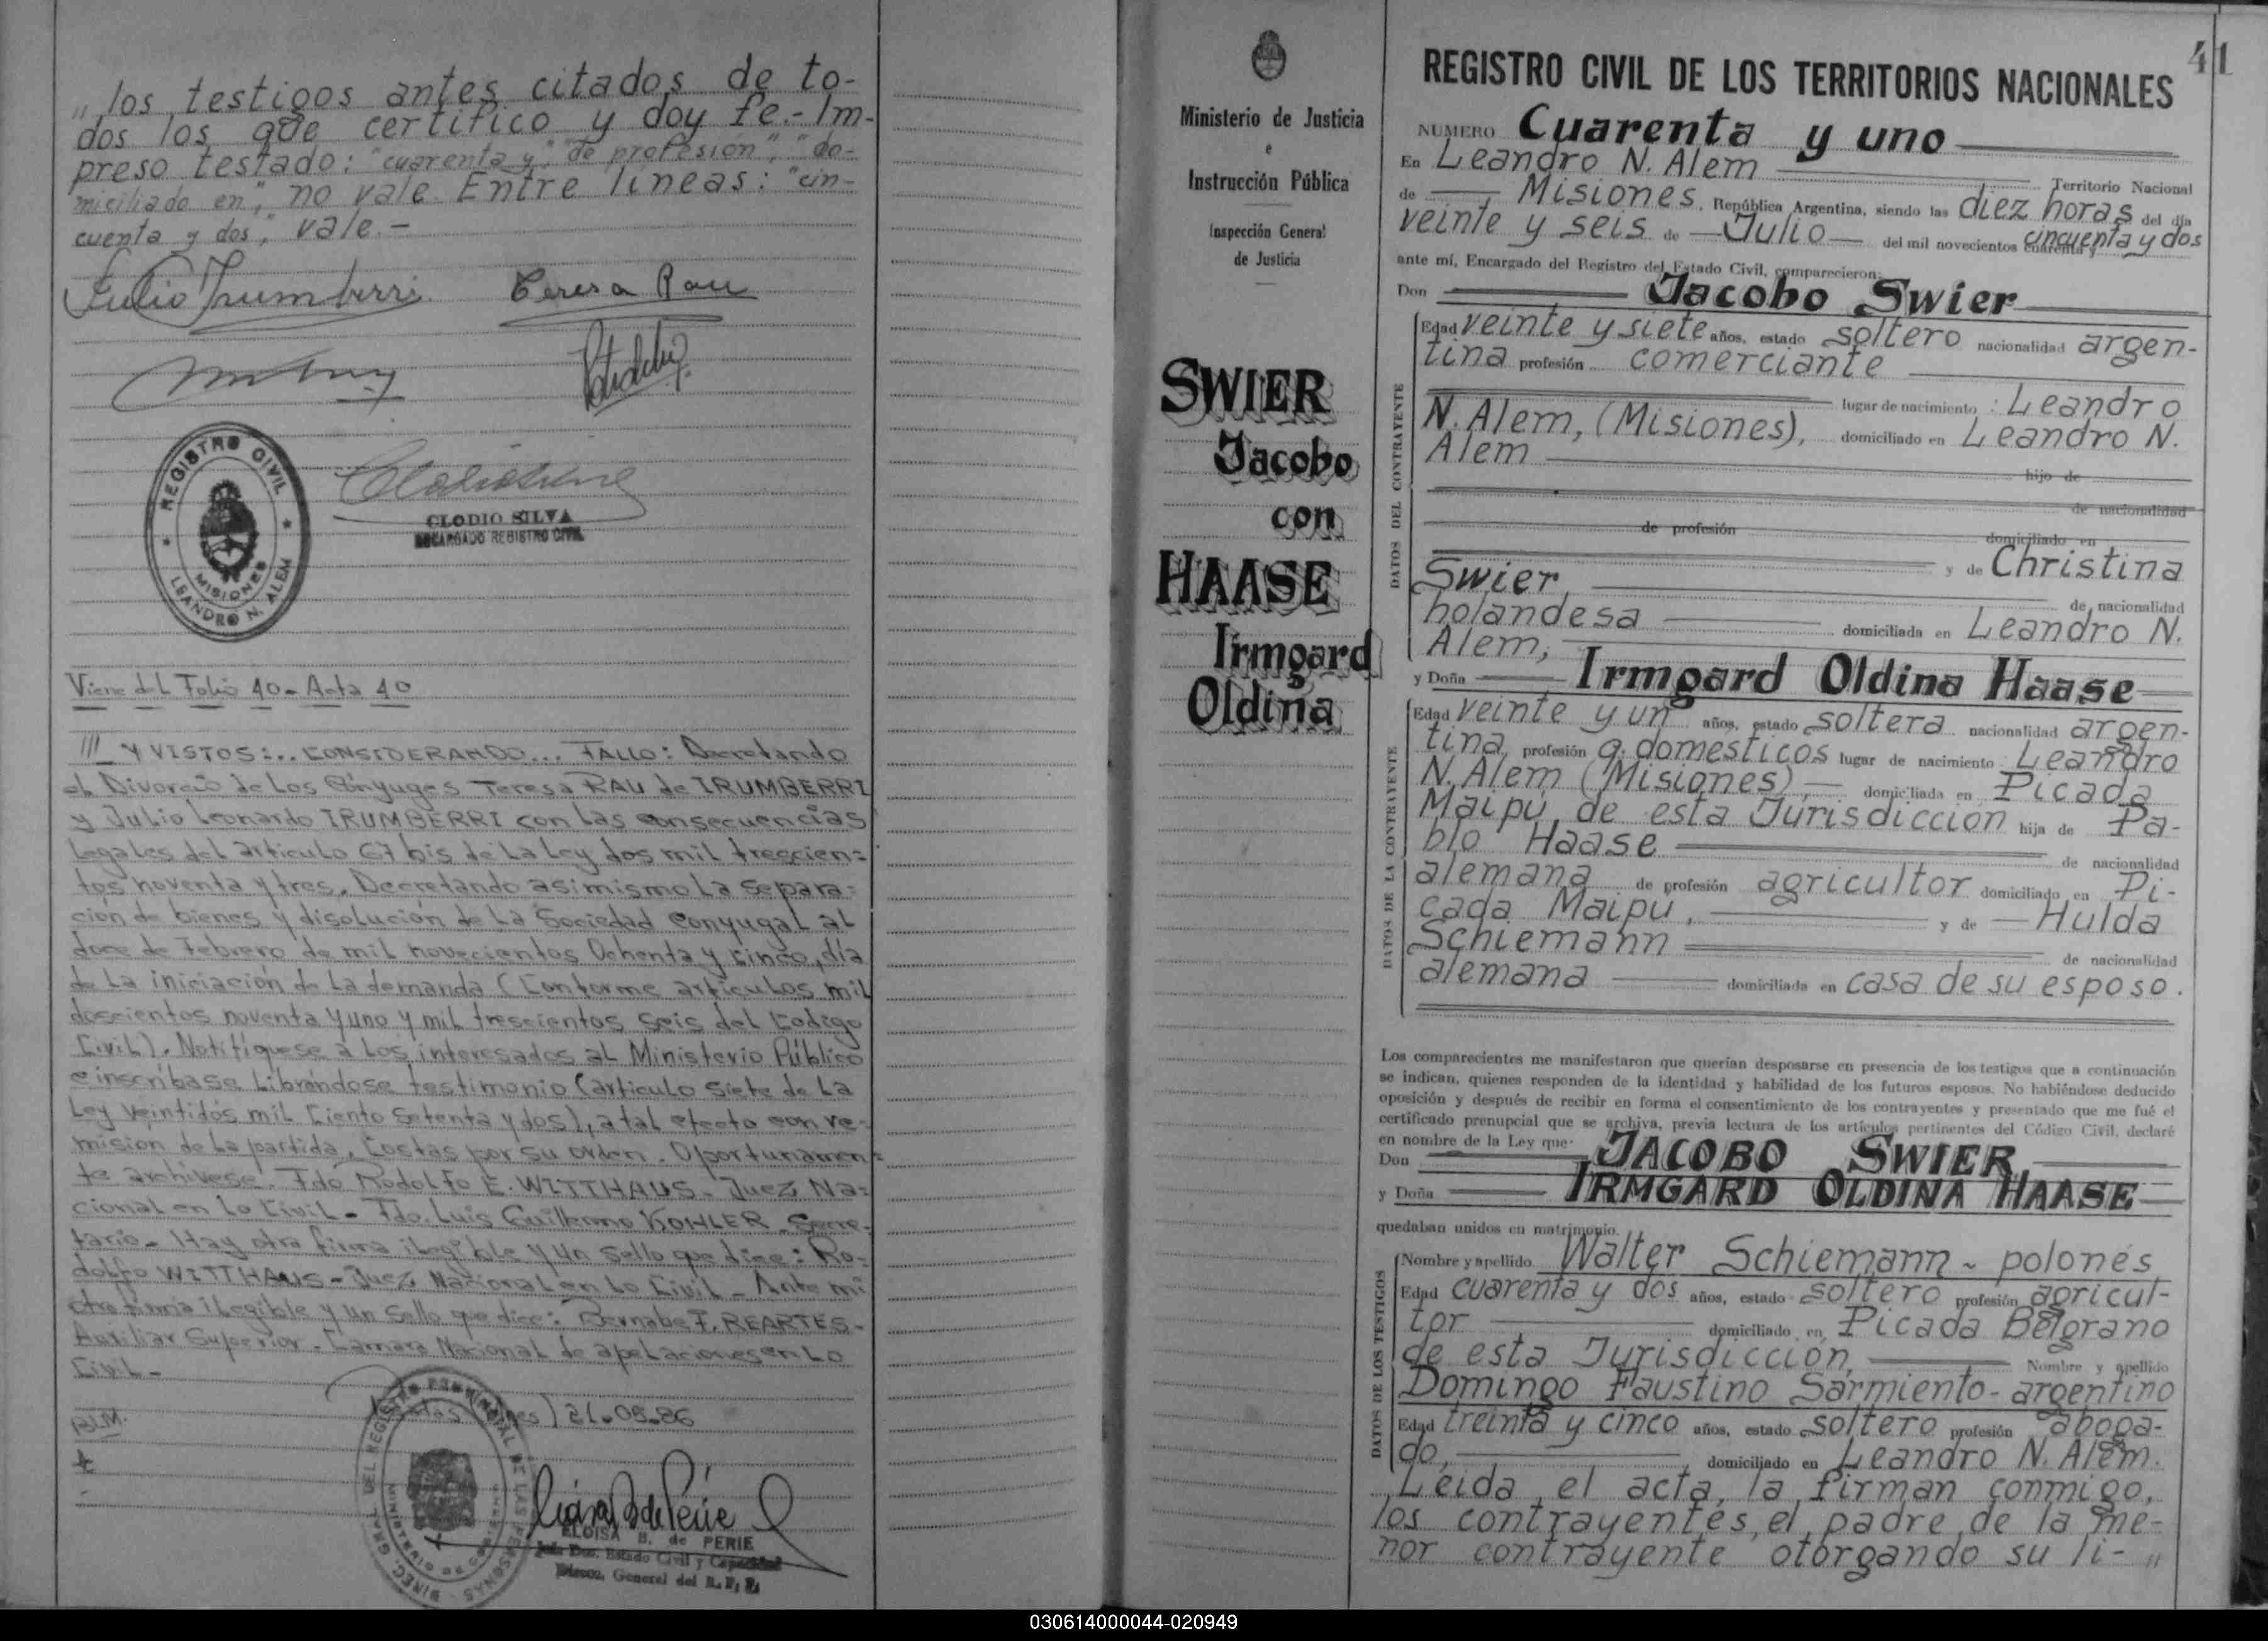 „ los testigos antes citados de to-
dos los que certifico y doy fe.- Im-
preso testado: "cuarenta y", "de profesion", "do-
miciliado en", no vale. Entre líneas: "cin-
cuenta y dos", vale.-
Julio Irumberri Teresa Rau
REGISTRO CIVIL
MISIONES
LEANDRO N. ALEM
CLODIO SILVA
ENCARGADO REGISTRO CIVIL
Viene del Folio 40 - Acta 40
/// Y VISTOS:.. CONSIDERANDO... FALLO: Decretando
el Divorcio de Los Cónyuges Teresa RAU de IRUMBERRI
y Julio Leonardo IRUMBERRI con Las consecuencias
Legales del articulo 67 bis de La Ley dos mil trescien=
tos noventa y tres. Decretando asimismo La separa=
ción de bienes y disolución de La Sociedad Conyugal al
doce de Febrero de mil novecientos Ochenta y cinco, día
de La iniciación de La demanda (Conforme artículos mil
doscientos noventa y uno y mil trescientos seis del Codigo
Civil). Notifíquese a Los interesados al Ministerio Público
e inscríbase Librándose testimonio (articulo siete de La
Ley Veintidós mil Ciento Setenta y dos), a tal efecto con re-
mision de La partida. Costas por su orden. Oportunamen=
te archivese. Fdo Rodolfo E. WITTHAUS - Juez Na=
cional en Lo Civil - Fdo. Luis Guillermo KOHLER Secre-
tario - Hay otra firma ilegible y un sello que dice: Ro=
dolfo WITTHAUS - Juez Nacional en Lo Civil - Ante mi
otra firma ilegible y un Sello que dice: Bernabe F. REARTES -
Auxiliar Superior - Camara Nacional de apelaciones en Lo
Civil -
21-05-86
BLM.
ELOISA B. de PERIE
Jefa Dpo. Estado Civil y Capacidad
Direcc. General del R. P. P.
Ministerio de Justicia
e
Instrucción Pública
Inspección General
de Justicia
SWIER
Jacobo
con
HAASE
Irmgard
Oldina
41
REGISTRO CIVIL DE LOS TERRITORIOS NACIONALES
NUMERO Cuarenta y uno
En Leandro N. Alem Territorio Nacional
de Misiones, República Argentina, siendo las diez horas del día
veinte y seis de Julio del mil novecientos cuarenta y cincuenta y dos
ante mí, Encargado del Registro del Estado Civil, comparecieron:
Don Jacobo Swier
DATOS DEL CONTRAYENTE
Edad veinte y siete años, estado soltero nacionalidad argen-
tina profesión comerciante
lugar de nacimiento: Leandro
N. Alem, (Misiones), domiciliado en Leandro N.
Alem hijo de
de nacionalidad
de profesión domiciliado en
y de Christina
Swier de nacionalidad
holandesa domiciliada en Leandro N.
Alem,
y Doña Irmgard Oldina Haase
DATOS DE LA CONTRAYENTE
Edad veinte y un años, estado soltera nacionalidad argen-
tina, profesión q. domesticos lugar de nacimiento Leandro
N. Alem (Misiones), domiciliada en Picada
Maipú, de esta Jurisdiccion hija de Pa-
blo Haase de nacionalidad
alemana de profesión agricultor domiciliado en Pi-
cada Maipú, y de Hulda
Schiemann de nacionalidad
alemana domiciliada en casa de su esposo.
Los comparecientes me manifestaron que querían desposarse en presencia de los testigos que a continuación
se indican, quienes responden de la identidad y habilidad de los futuros esposos. No habiéndose deducido
oposición y después de recibir en forma el consentimiento de los contrayentes y presentado que me fué el
certificado prenupcial que se archiva, previa lectura de los artículos pertinentes del Código Civil, declaré
en nombre de la Ley que:
Don JACOBO SWIER
y Doña IRMGARD OLDINA HAASE
quedaban unidos en matrimonio.
DATOS DE LOS TESTIGOS
Nombre y apellido Walter Schiemann - polonés
Edad cuarenta y dos años, estado soltero profesión agricul-
tor domiciliado en Picada Belgrano
de esta Jurisdicción, Nombre y apellido
Domingo Faustino Sarmiento - argentino
Edad treinta y cinco años, estado soltero profesión aboga-
do, domiciliado en Leandro N. Alem.
Leida el acta, la firman conmigo,
los contrayentes, el padre de la me-
nor contrayente otorgando su li- „
030614000044-020949